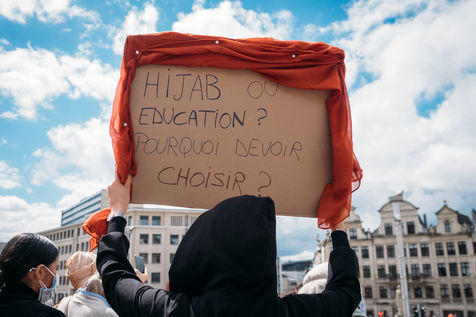 HIJAB OU
EDUCATION ?
POURQUOI DEVOIR
CHOISIR ?